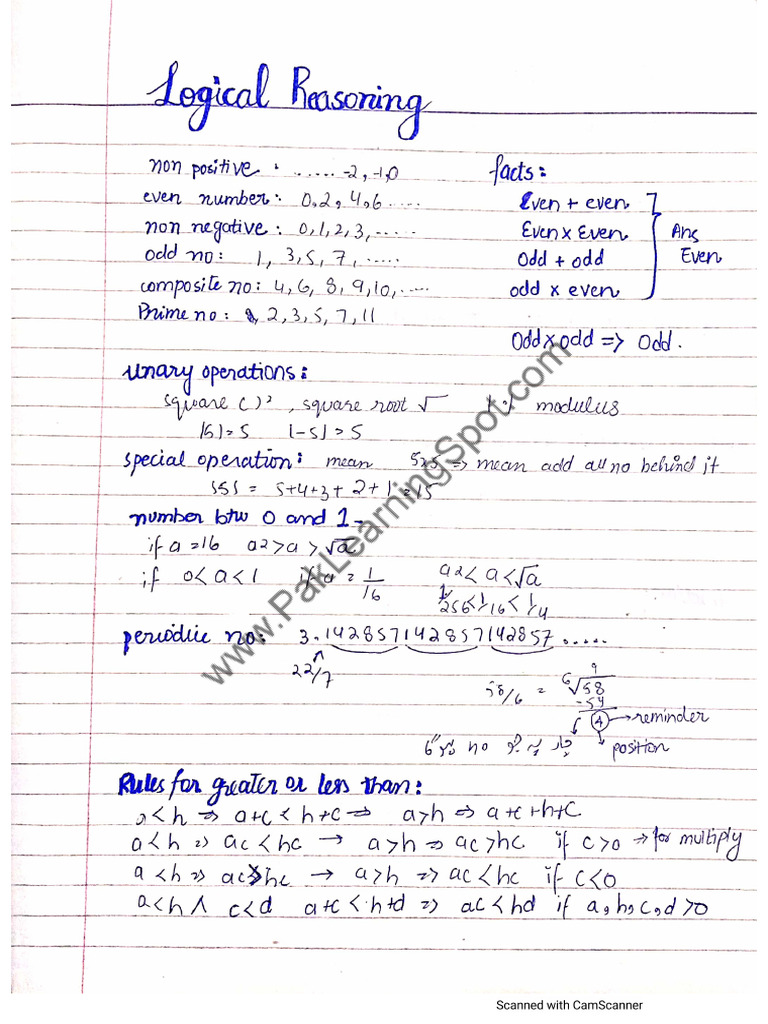 Logical Reasoning
non positive : ......-2,-1,0
even number: 0,2,4,6.....
non negative: 0,1,2,3,.....
odd no: 1, 3,5,7,.....
composite no: 4,6,8,9,10,....
Prime no: 2,3,5,7,11
facts:
Even + even
Even x Even
odd + odd
odd x even
Ans
Even
Odd x odd => Odd.
Unary operations:
square ( )², square root √ % modulus
|5|=5 |-5|=5
special operation: mean => mean add all no behind it
= 5+4+3+2+1=15
number btw 0 and 1-
if a=16 a2>a>√a
if 0<a<1 if a = 1/16 a2<a<√a
1/256<1/16<1/4
periodic no: 3.142857142857142857.....
22/7
58/6 = 6√58
9
-54
4 → reminder
position
no
Rules for greater or less than:
<h => a+c<h+c => a>h => a+c+h+c
a<h => ac<hc → a>h => ac>hc if c>0 → for multiply
a<h => ac>hc → a>h => ac<hc if c<0
a<h ∧ c<d a+c<h+d => ac<hd if a,h,c,d>0
www.PakLearningSpot.com
Scanned with CamScanner